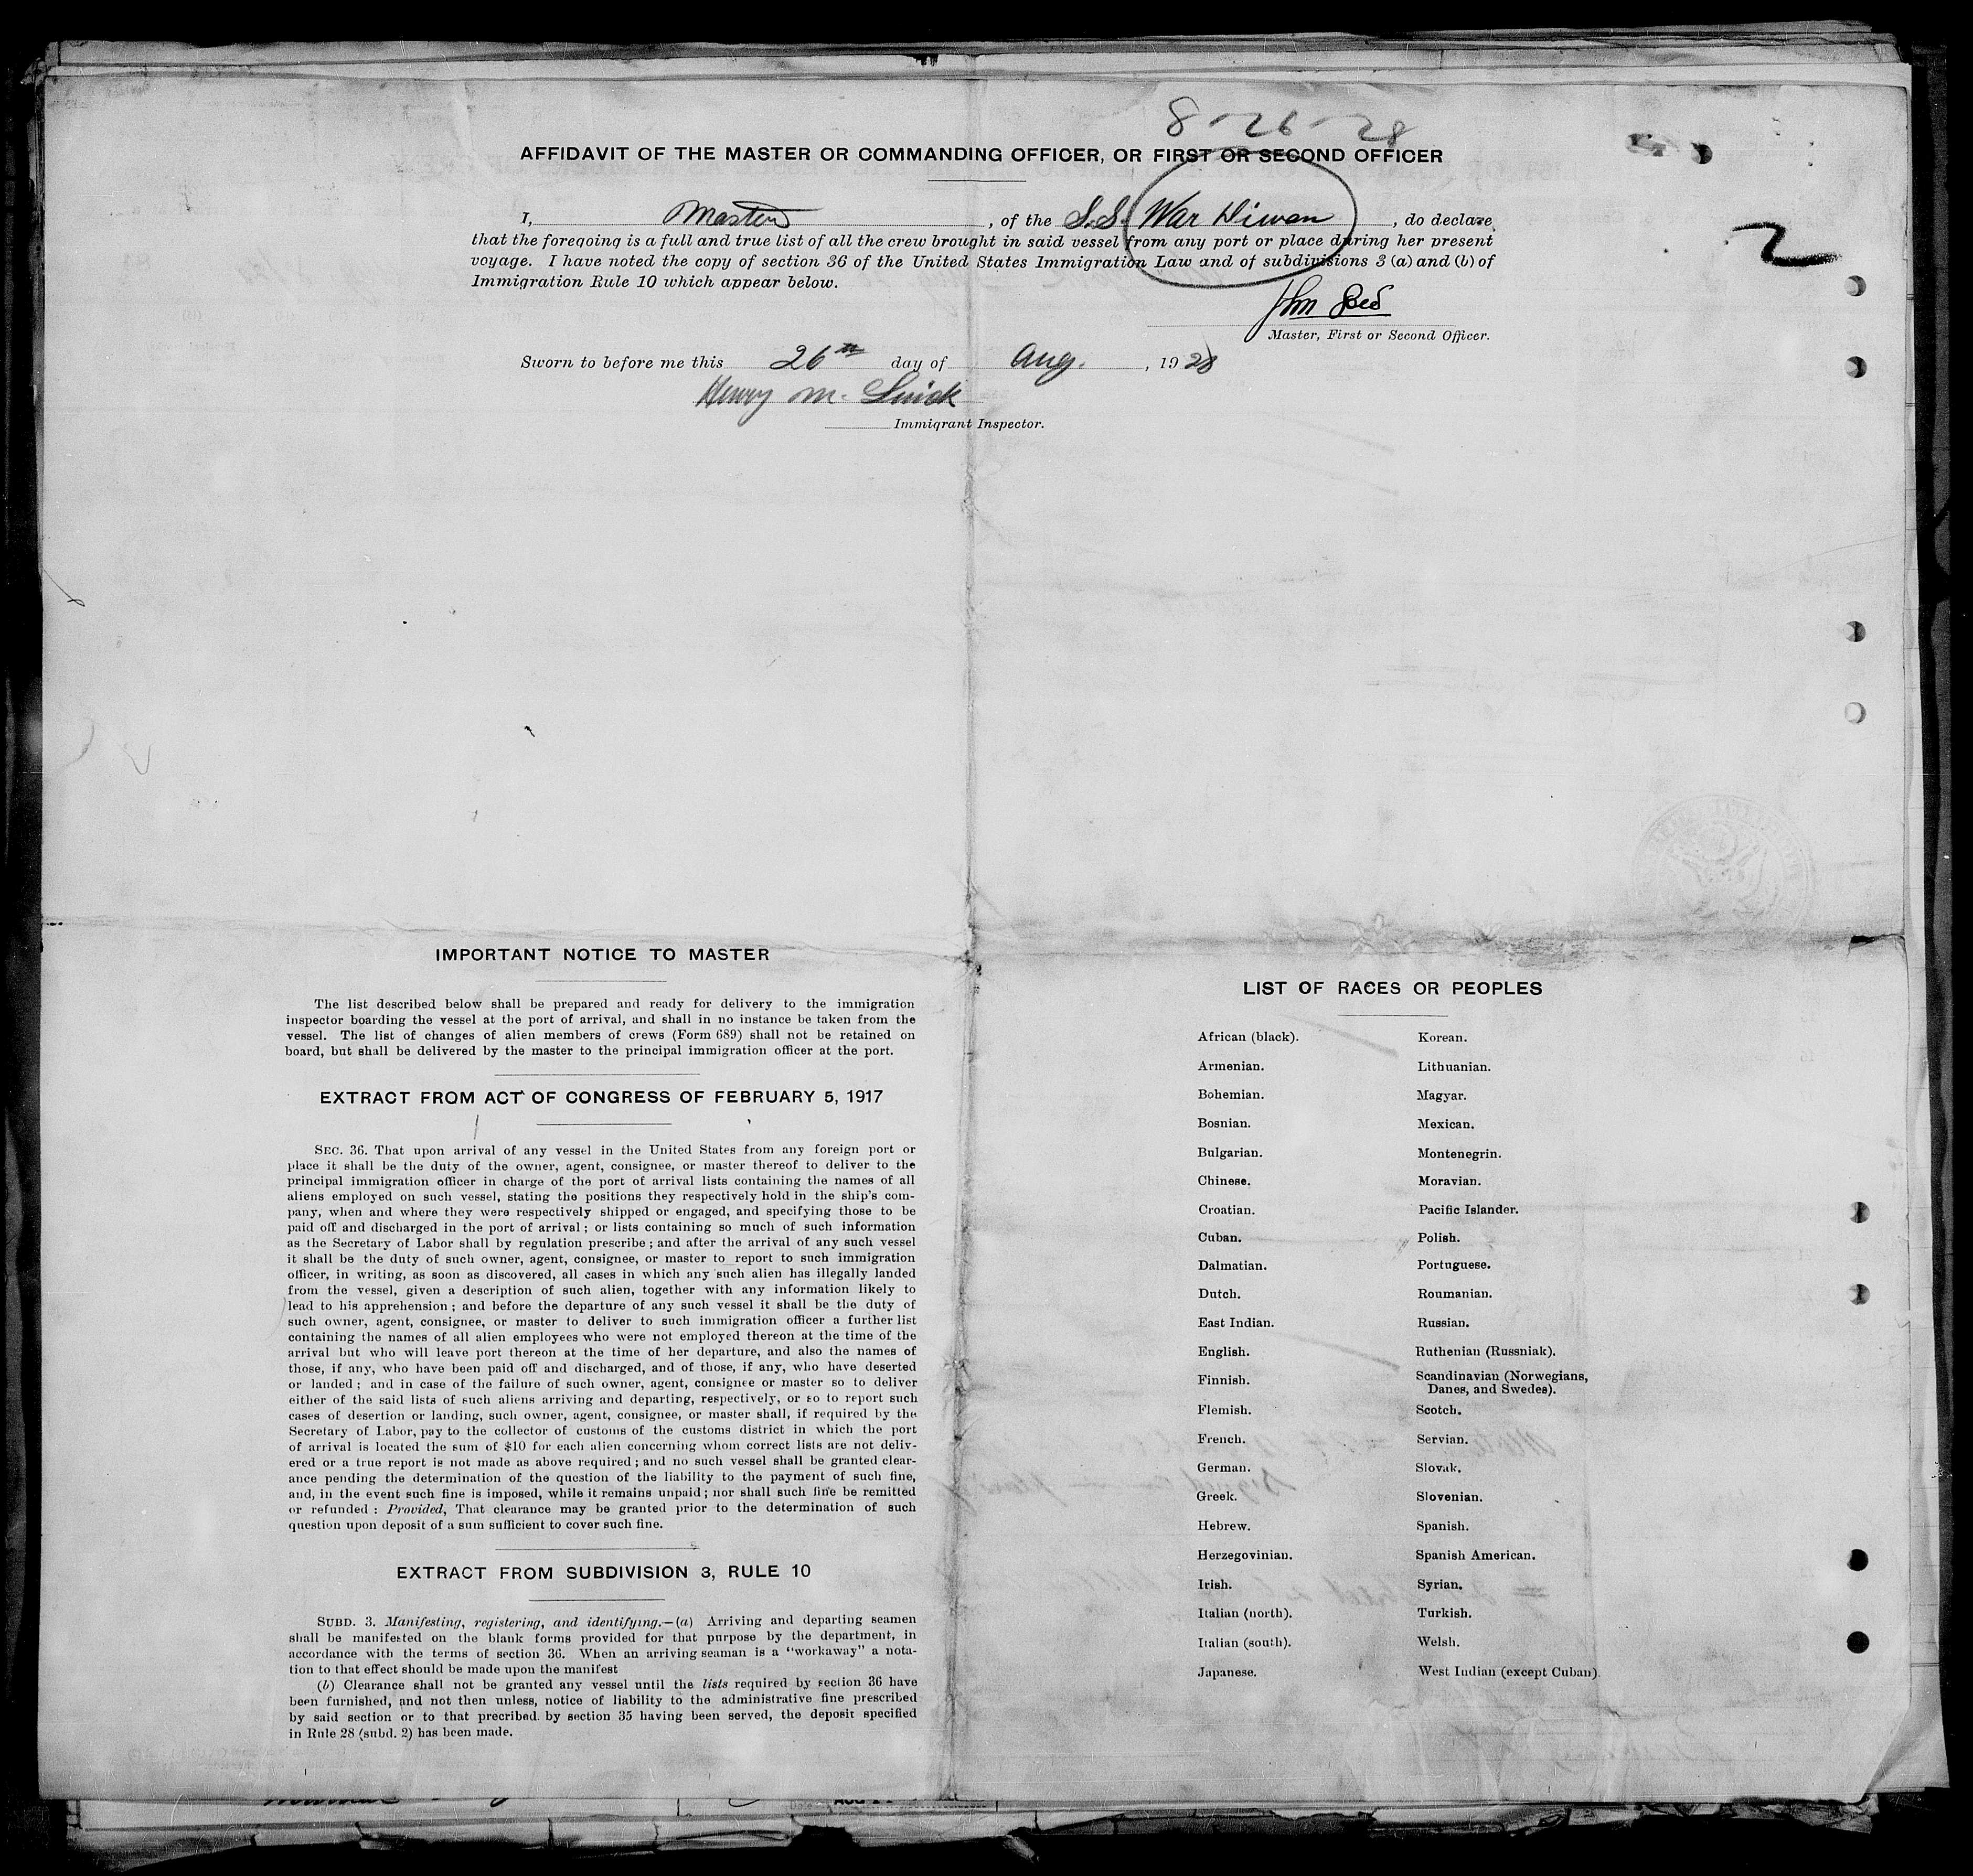 8-26-28
AFFIDAVIT OF THE MASTER OR COMMANDING OFFICER, OR FIRST OR SECOND OFFICER
I, Master, of the S.S. War Diwan, do declare
that the foregoing is a full and true list of all the crew brought in said vessel from any port or place during her present
voyage. I have noted the copy of section 36 of the United States Immigration Law and of subdivisions 3 (a) and (b) of
Immigration Rule 10 which appear below.
2
Master, First or Second Officer.
Sworn to before me this 26th day of Aug., 1928
Henry M.
Immigrant Inspector.
IMPORTANT NOTICE TO MASTER
The list described below shall be prepared and ready for delivery to the immigration
inspector boarding the vessel at the port of arrival, and shall in no instance be taken from the
vessel. The list of changes of alien members of crews (Form 689) shall not be retained on
board, but shall be delivered by the master to the principal immigration officer at the port.
EXTRACT FROM ACT OF CONGRESS OF FEBRUARY 5, 1917
SEC. 36. That upon arrival of any vessel in the United States from any foreign port or
place it shall be the duty of the owner, agent, consignee, or master thereof to deliver to the
principal immigration officer in charge of the port of arrival lists containing the names of all
aliens employed on such vessel, stating the positions they respectively hold in the ship's com-
pany, when and where they were respectively shipped or engaged, and specifying those to be
paid off and discharged in the port of arrival; or lists containing so much of such information
as the Secretary of Labor shall by regulation prescribe; and after the arrival of any such vessel
it shall be the duty of such owner, agent, consignee, or master to report to such immigration
officer, in writing, as soon as discovered, all cases in which any such alien has illegally landed
from the vessel, given a description of such alien, together with any information likely to
lead to his apprehension; and before the departure of any such vessel it shall be the duty of
such owner, agent, consignee, or master to deliver to such immigration officer a further list
containing the names of all alien employees who were not employed thereon at the time of the
arrival but who will leave port thereon at the time of her departure, and also the names of
those, if any, who have been paid off and discharged, and of those, if any, who have deserted
or landed; and in case of the failure of such owner, agent, consignee or master so to deliver
either of the said lists of such aliens arriving and departing, respectively, or so to report such
cases of desertion or landing, such owner, agent, consignee, or master shall, if required by the
Secretary of Labor, pay to the collector of customs of the customs district in which the port
of arrival is located the sum of $10 for each alien concerning whom correct lists are not deliv-
ered or a true report is not made as above required; and no such vessel shall be granted clear-
ance pending the determination of the question of the liability to the payment of such fine,
and, in the event such fine is imposed, while it remains unpaid; nor shall such fine be remitted
or refunded: Provided, That clearance may be granted prior to the determination of such
question upon deposit of a sum sufficient to cover such fine.
EXTRACT FROM SUBDIVISION 3, RULE 10
SUBD. 3. Manifesting, registering, and identifying.—(a) Arriving and departing seamen
shall be manifested on the blank forms provided for that purpose by the department, in
accordance with the terms of section 36. When an arriving seaman is a "workaway" a nota-
tion to that effect should be made upon the manifest
(b) Clearance shall not be granted any vessel until the lists required by section 36 have
been furnished, and not then unless, notice of liability to the administrative fine prescribed
by said section or to that precribed by section 35 having been served, the deposit specified
in Rule 28 (subd. 2) has been made.
LIST OF RACES OR PEOPLES
African (black).
Armenian.
Bohemian.
Bosnian.
Bulgarian.
Chinese.
Croatian.
Cuban.
Dalmatian.
Dutch.
East Indian.
English.
Finnish.
Flemish.
French.
German.
Greek.
Hebrew.
Herzegovinian.
Irish.
Italian (north).
Italian (south).
Japanese.
Korean.
Lithuanian.
Magyar.
Mexican.
Montenegrin.
Moravian.
Pacific Islander.
Polish.
Portuguese.
Roumanian.
Russian.
Ruthenian (Russniak).
Scandinavian (Norwegians,
Danes, and Swedes).
Scotch.
Servian.
Slovak.
Slovenian.
Spanish.
Spanish American.
Syrian.
Turkish.
Welsh.
West Indian (except Cuban)